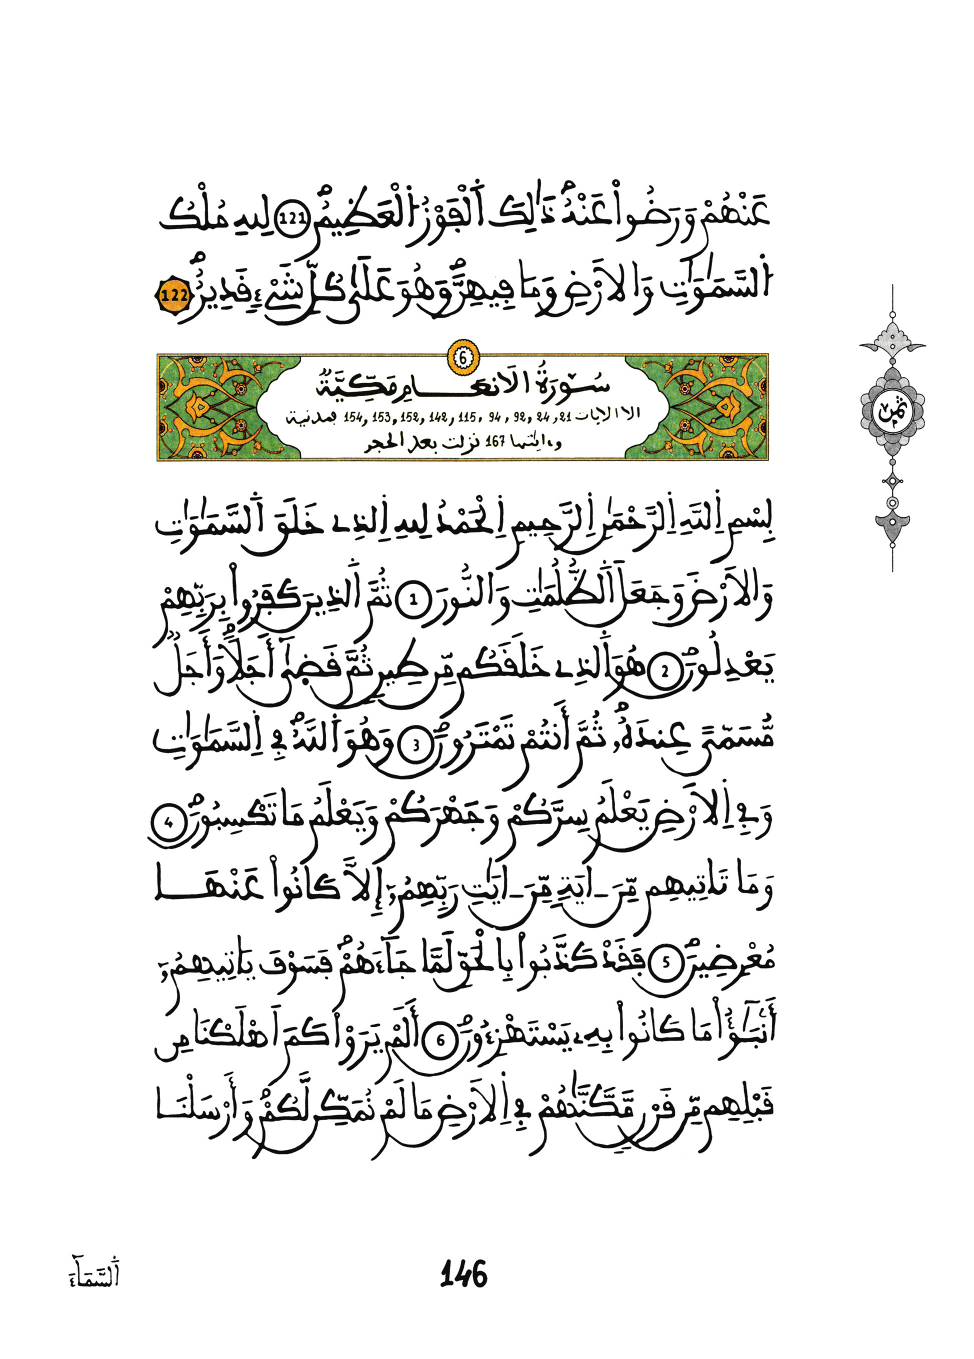 عَنْهُمْ وَرَضُواْ عَنْهُۖ ذَٰلِكَ اَ۬لْفَوْزُ اُ۬لْعَظِيمُۖ 121 لِلهِ مُلْكُ
اُ۬لسَّمَٰوَٰتِ وَالَارْضِ وَمَا فِيهِنَّۖ وَهُوَ عَلَىٰ كُلِّ شَےْءٖ قَدِيرٌۖ 122
6
سُورَةُ الَانعَامِ مَكِّيَّةٌ
الا الايات 21, 24, 92, 94, 115, 142, 152, 153, 154 فمدنية
وءاياتها 167 نزلت بعد الحجر
ثمن
بِسْمِ اِ۬للَّهِ اِ۬لرَّحْمَٰنِ اِ۬لرَّحِيمِ اِ۬لْحَمْدُ لِلهِ اِ۬لذِے خَلَقَ اَ۬لسَّمَٰوَٰتِ
وَالَارْضَ وَجَعَلَ اَ۬لظُّلُمَٰتِ وَالنُّورَ 1 ثُمَّ اَ۬لذِينَ كَفَرُواْ بِرَبِّهِمْ
يَعْدِلُونَۖ 2 هُوَ اَ۬لذِے خَلَقَكُم مِّن طِينٖ ثُمَّ قَضَىٰٓ أَجَلاٗۖ وَأَجَلٞ
مُّسَمّيً عِندَهُۥۖ ثُمَّ أَنتُمْ تَمْتَرُونَۖ 3 وَهُوَ اَ۬للَّهُ فِے اِ۬لسَّمَٰوَٰتِ
وَفِے اِ۬لَارْضِ يَعْلَمُ سِرَّكُمْ وَجَهْرَكُمْ وَيَعْلَمُ مَا تَكْسِبُونَۖ 4
وَمَا تَاتِيهِم مِّنَ ـ ايَةٖ مِّنَ ـ ايَٰتِ رَبِّهِمُۥٓ إِلَّا كَانُواْ عَنْهَا
مُعْرِضِينَۖ 5 فَقَدْ كَذَّبُواْ بِالْحَقِّ لَمَّا جَآءَهُمْۖ فَسَوْفَ يَاتِيهِمُۥٓ
أَنۢبَٰٓؤُاْ مَا كَانُواْ بِهِۦ يَسْتَهْزِءُونَۖ 6 أَلَمْ يَرَوْاْ كَمَ اَهْلَكْنَا مِن
قَبْلِهِم مِّن قَرْنٖ مَّكَّنَّٰهُمْ فِے اِ۬لَارْضِ مَا لَمْ نُمَكِّن لَّكُمْۖ وَأَرْسَلْنَا
اَ۬لسَّمَآءَ
146